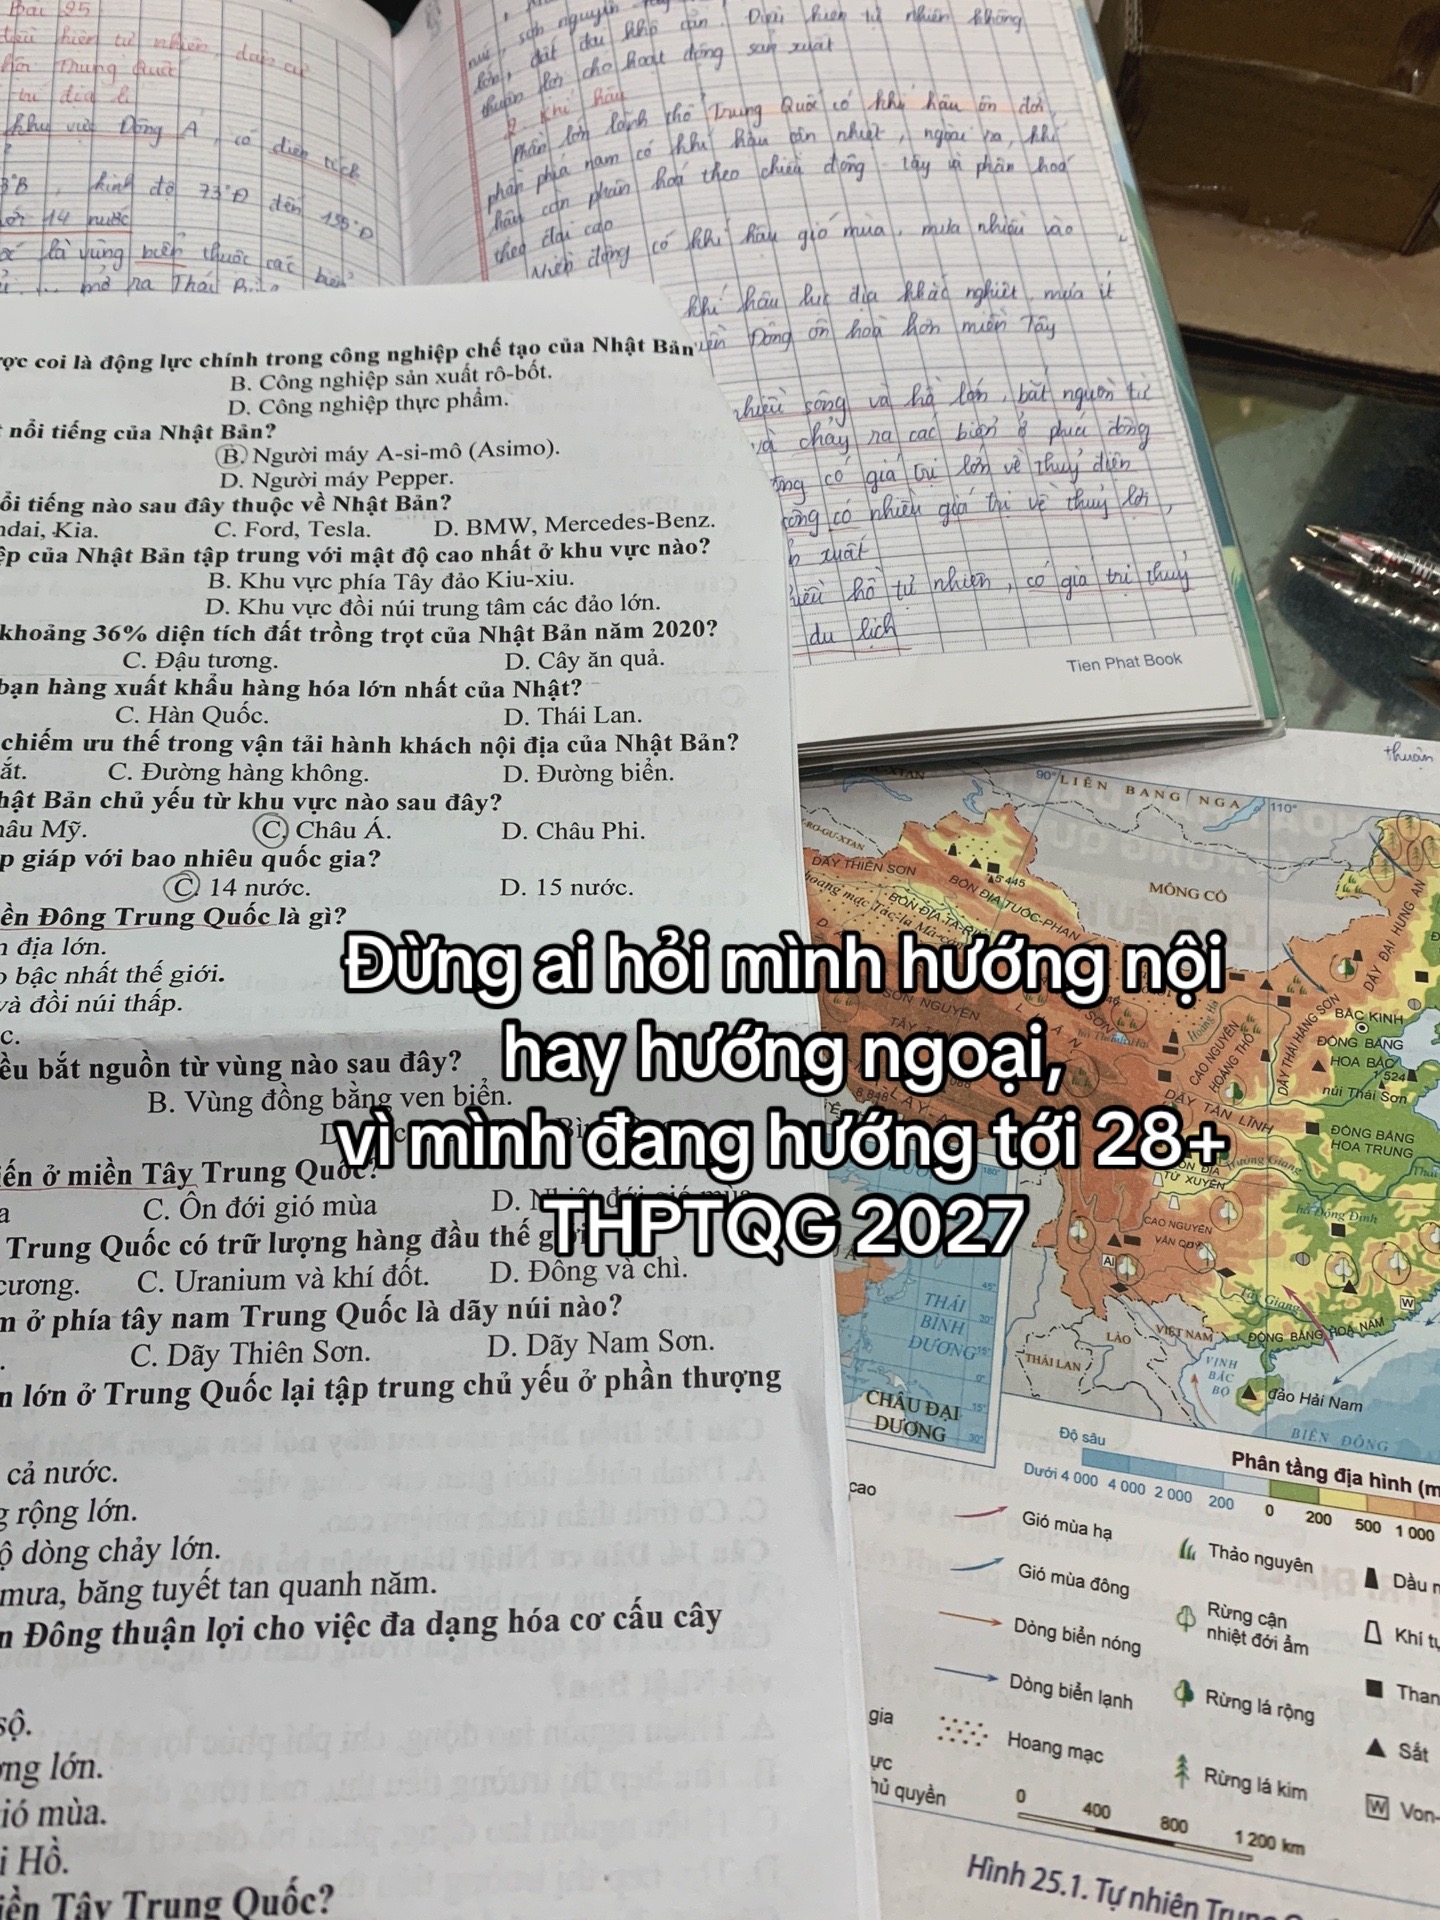 Bài 25
điều kiện tự nhiên, dân cư
Trung Quốc
khu vực Đông Á, có diện tích
kinh độ 73°Đ đến 135°Đ
14 nước
là vùng biển thuộc các biển
mở ra Thái
núi, sơn nguyên
lớn, đất đai khô cằn. Điều kiện tự nhiên không
thuận lợi cho hoạt động sản xuất
2. Khí hậu
Phần lớn lãnh thổ Trung Quốc có khí hậu ôn đới,
phần phía nam có khí hậu cận nhiệt, ngoài ra, khí
hậu còn phân hoá theo chiều đông - tây và phân hoá
theo đai cao
Miền đông có khí hậu gió mùa, mưa nhiều vào
khí hậu lục địa khắc nghiệt, mưa ít
Đông ôn hoà hơn miền Tây
nhiều sông và hồ lớn, bắt nguồn từ
và chảy ra các biển ở phía đông
có giá trị lớn về thuỷ điện
có nhiều giá trị về thuỷ lợi,
xuất
hồ tự nhiên, có giá trị thuỷ
du lịch
Tien Phat Book
ợc coi là động lực chính trong công nghiệp chế tạo của Nhật Bản
B. Công nghiệp sản xuất rô-bốt.
D. Công nghiệp thực phẩm.
nổi tiếng của Nhật Bản?
B. Người máy A-si-mô (Asimo).
D. Người máy Pepper.
ổi tiếng nào sau đây thuộc về Nhật Bản?
ndai, Kia. C. Ford, Tesla. D. BMW, Mercedes-Benz.
ệp của Nhật Bản tập trung với mật độ cao nhất ở khu vực nào?
B. Khu vực phía Tây đảo Kiu-xiu.
D. Khu vực đồi núi trung tâm các đảo lớn.
khoảng 36% diện tích đất trồng trọt của Nhật Bản năm 2020?
C. Đậu tương. D. Cây ăn quả.
bạn hàng xuất khẩu hàng hóa lớn nhất của Nhật?
C. Hàn Quốc. D. Thái Lan.
chiếm ưu thế trong vận tải hành khách nội địa của Nhật Bản?
ắt. C. Đường hàng không. D. Đường biển.
hật Bản chủ yếu từ khu vực nào sau đây?
hâu Mỹ. C. Châu Á. D. Châu Phi.
p giáp với bao nhiêu quốc gia?
C. 14 nước. D. 15 nước.
ền Đông Trung Quốc là gì?
địa lớn.
bậc nhất thế giới.
và đồi núi thấp.
c.
ều bắt nguồn từ vùng nào sau đây?
B. Vùng đồng bằng ven biển.
iến ở miền Tây Trung Quốc?
a C. Ôn đới gió mùa D. Nhiệt đới gió mùa
Trung Quốc có trữ lượng hàng đầu thế giới
cương. C. Uranium và khí đốt. D. Đồng và chì.
n ở phía tây nam Trung Quốc là dãy núi nào?
C. Dãy Thiên Sơn. D. Dãy Nam Sơn.
n lớn ở Trung Quốc lại tập trung chủ yếu ở phần thượng
cả nước.
g rộng lớn.
ộ dòng chảy lớn.
mưa, băng tuyết tan quanh năm.
n Đông thuận lợi cho việc đa dạng hóa cơ cấu cây
sộ.
ng lớn.
ió mùa.
i Hồ.
iền Tây Trung Quốc?
Đừng ai hỏi mình hướng nội
hay hướng ngoại,
vì mình đang hướng tới 28+
THPTQG 2027
thuận
90° LIÊN BANG NGA 110°
DÃY THIÊN SƠN
5 445
BỒN ĐỊA TUỐC-PHAN
MÔNG CỔ
DÃY ĐẠI HƯNG AN
SƠN NGUYÊN
Hoàng Hà
CAO NGUYÊN
HOÀNG THỔ
DÃY THÁI HÀNG SƠN
BẮC KINH
ĐỒNG BẰNG
HOA BẮC
1 524
núi Thái Sơn
DÃY TẦN LĨNH
ĐỒNG BẰNG
HOA TRUNG
Trường Giang
TỨ XUYÊN
hồ Động Đình
CAO NGUYÊN
VÂN QUÝ
Tây Giang
ĐỒNG BẰNG HOA NAM
LÀO
VIỆT NAM
THÁI LAN
VỊNH
BẮC
BỘ
đảo Hải Nam
BIỂN ĐÔNG
180°
THÁI
BÌNH
DƯƠNG
CHÂU ĐẠI
DƯƠNG
45°
30°
15°
0°
15°
30°
Độ sâu
Dưới 4 000 4 000 2 000 200
Phân tầng địa hình (m
0 200 500 1 000
cao
Gió mùa hạ
Gió mùa đông
Dòng biển nóng
Dòng biển lạnh
Hoang mạc
Thảo nguyên
Rừng cận
nhiệt đới ẩm
Rừng lá rộng
Rừng lá kim
Dầu m
Khí tự
Than
Sắt
W Von-
gia
ực
hủ quyền
0 400 800 1 200 km
Hình 25.1. Tự nhiên Trung